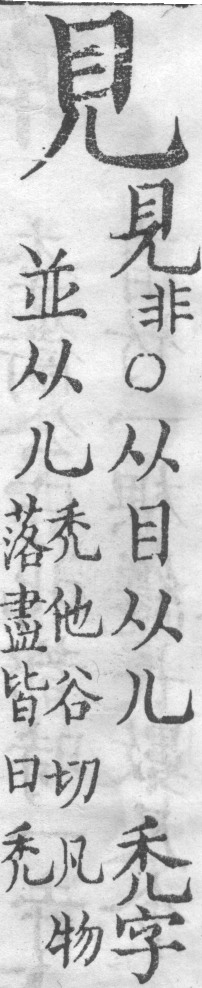 見
見非〇从目从儿 禿字
並从儿禿他谷切凡物
落盡皆曰禿